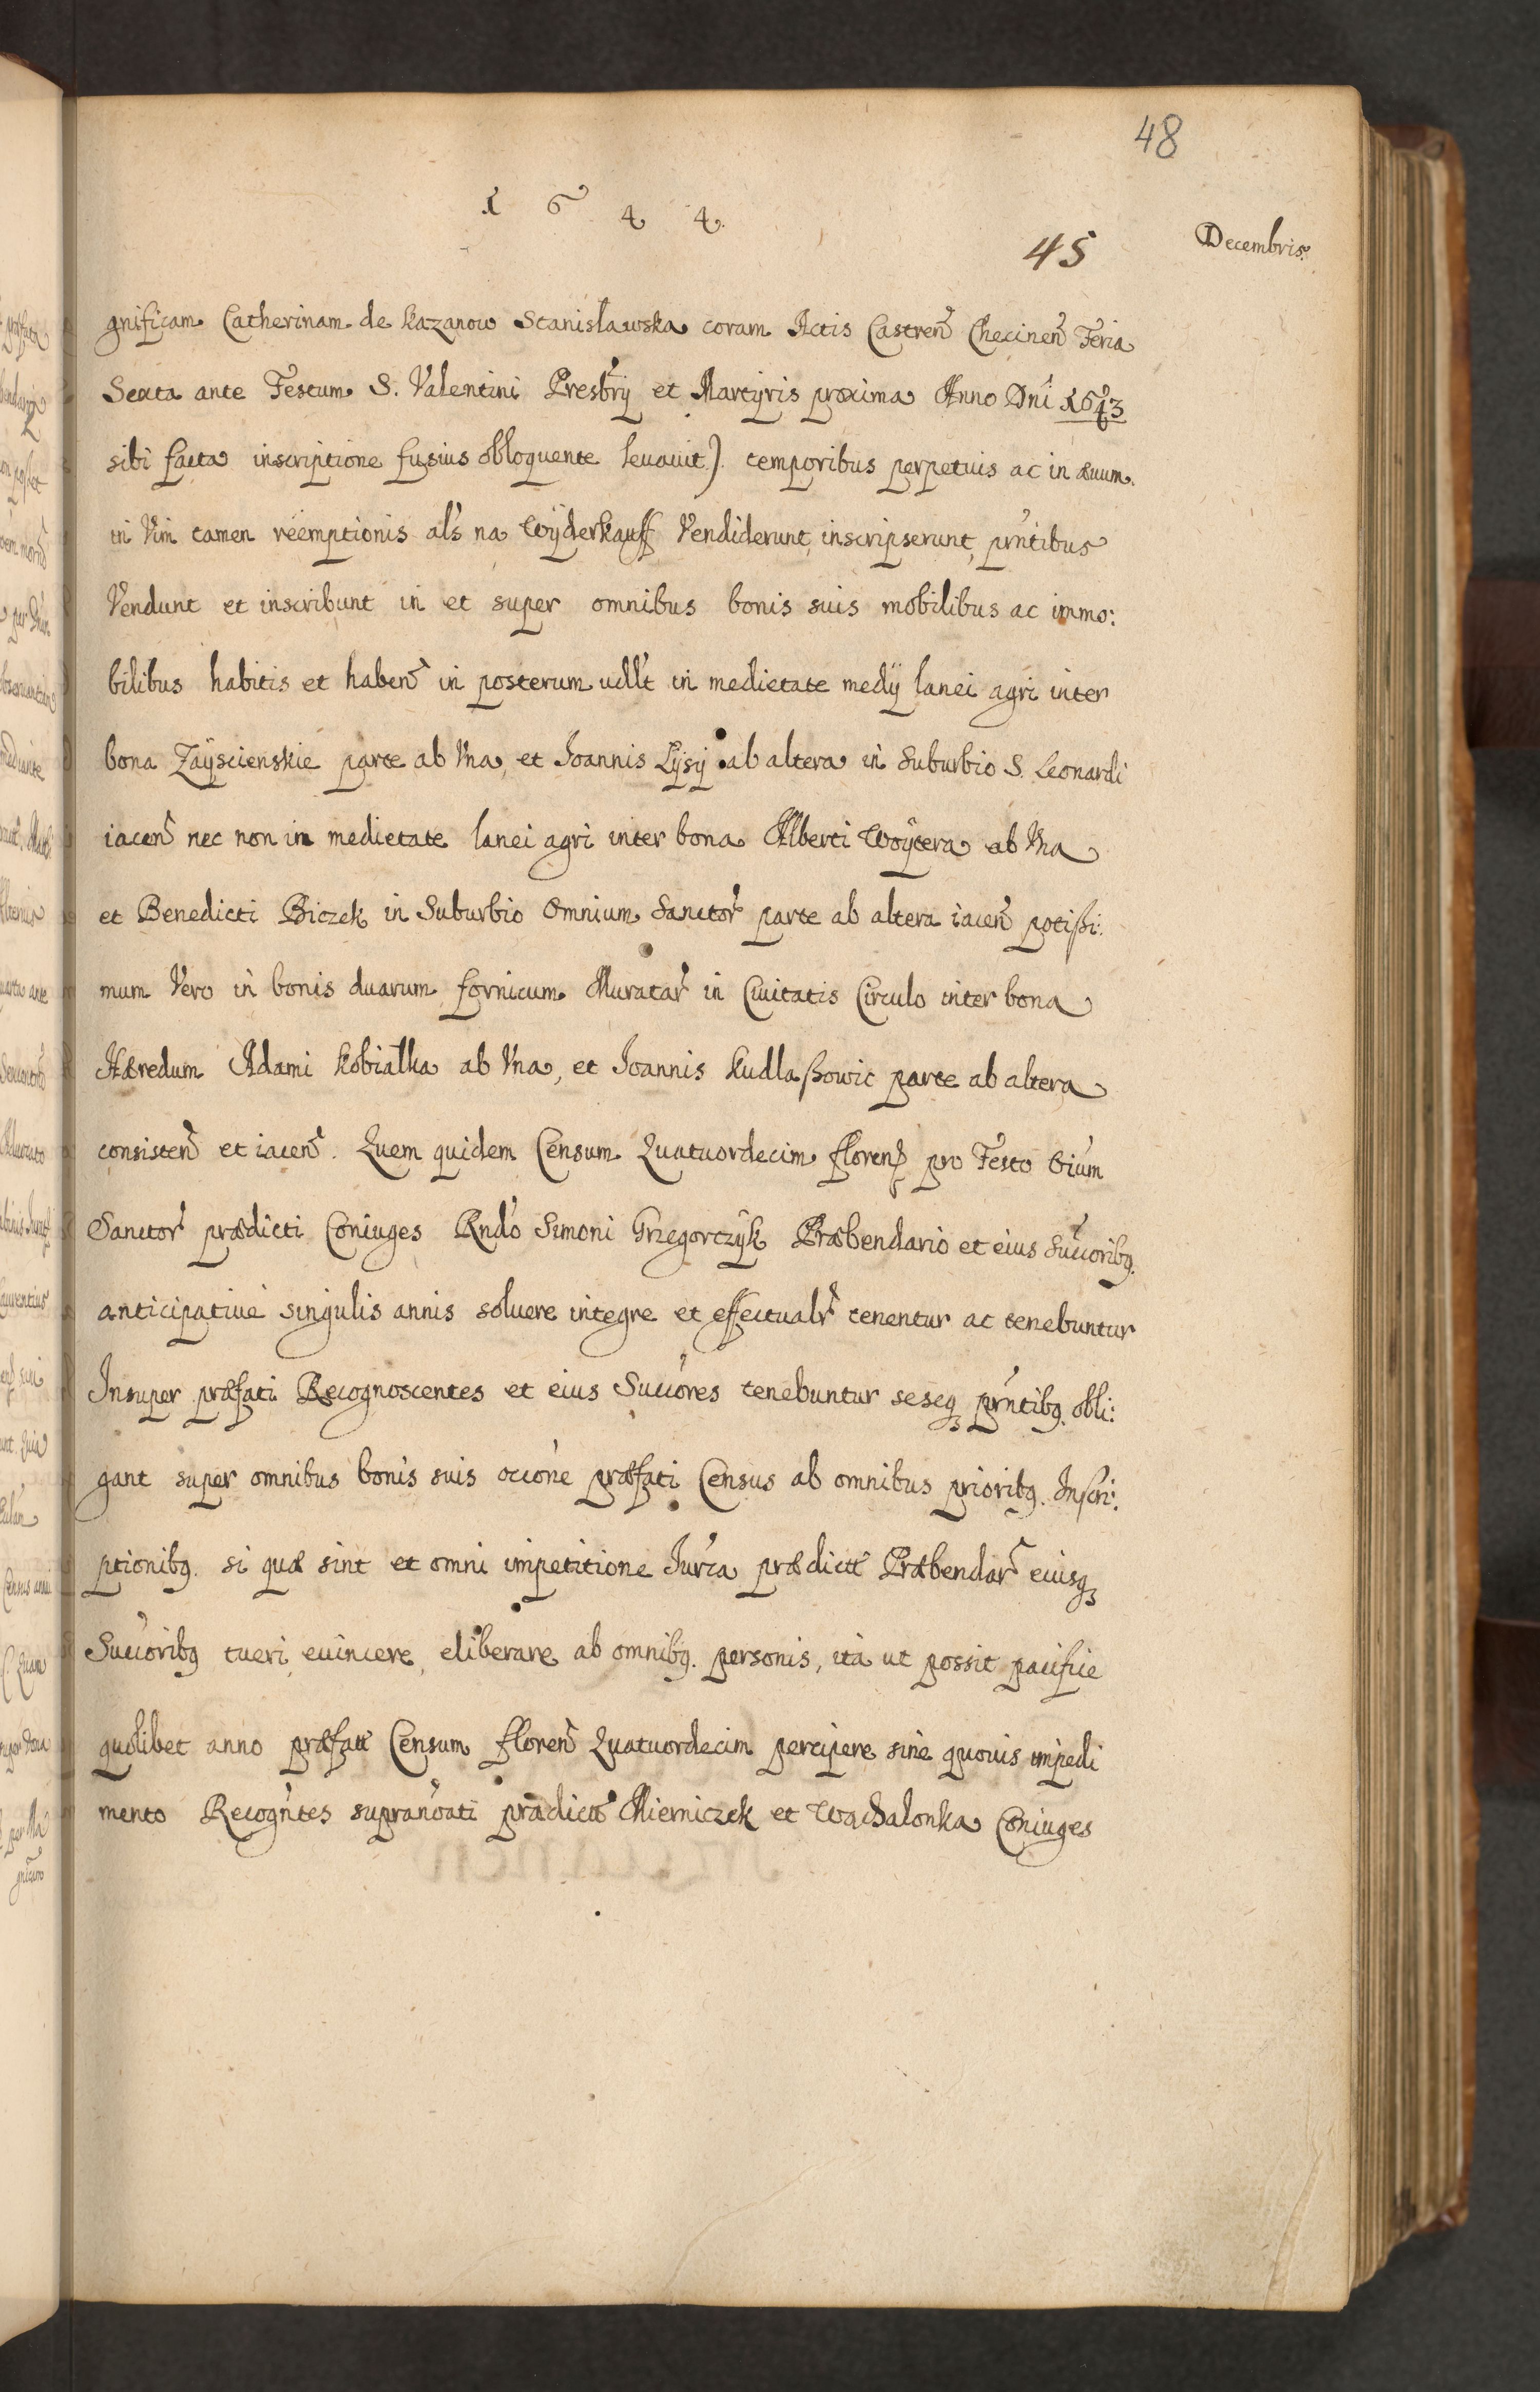 48
1 6 4 4.
45
Decembris.
gnificam Catherinam de Kazanow Stanisławska coram Actis Castren̄ Checinen̄ Feria
Sexta ante Festum S. Valentini Presbr̄ij et Martÿris proxima Anno Dn̄i 1643
sibi facta inscriptione fusius obloquente leuauit). temporibus perpetuis ac in æuum.
in Vim tamen réémptionis al̄s na Wÿderkauff Vendiderunt, inscripserunt, prn̄tibus
Vendunt et inscribunt in et super omnibus bonis suis mobilibus ac immo:
bilibus habitis et haben̄ in posterum ucll̄t in medietate medÿ lanei agri inter
bona Zaÿscienskie parte ab Vna, et Joannis Lÿsÿ ab altera in Suburbio S. Leonardi
iacen̄ nec non in medietate lanei agri inter bona Alberti Woÿtera ab Vna
et Benedicti Biczek in Suburbio Omnium Sanctor̄ parte ab altera iacen̄ potißi:
mum Vero in bonis duarum fornicum Muratar̄ in Ciuitatis Circulo inter bona
Hæredum Adami Kobiałka ab Vna, et Joannis Kudlaßowic parte ab altera
consisten̄ et iacen̄. Quem quidem Censum Quatuordecim floren̄ pro Festo Oiu̅m
Sanctor̄ prædicti Coniuges Rnd̄o Simoni Grzegorczÿk Præbendario et eius Succ̄oribq.
anticipatiué singulis annis soluere integre et effectualr̄ tenentur ac tenebuntur
Insuper præfati Recognoscentes et eius Succ̄ores tenebuntur seseq prn̄tibq. obli:
gant super omnibus bonis suis occōne præfati Census ab omnibus prioribq. Inscri:
ptionibq. si quæ sint et omni impetitione Jur̄ca prædictt̄ Præbendar̄ eiusq
Succ̄oribq tueri, euincere, eliberare ab omnibq. personis, ità ut possit pacifice
quolibet anno præfatt̄ Censum floren̄ Quatuordecim percipere sine quouis impedi
mento Recogn̄tes supranōati prædictt̄ Mierniczek et Wąchalonka Coniuges